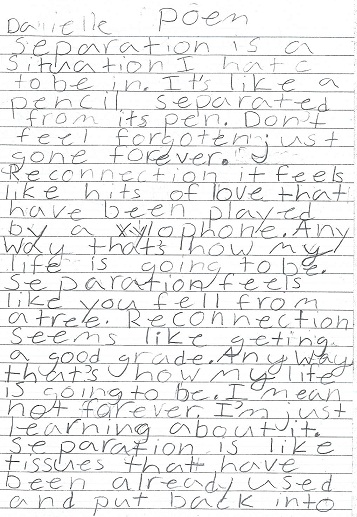 Danielle Poen
Separation is a
Situation I hate
to be in. It's like a
pencil separated
from its pen. Don't
feel forgoten just
gone forever.
Reconnection it feels
like hits of love that
have been played
by a xylophone. Any
way that's how my
life is going to be.
Separation feels
like you fell from
a tree. Reconnection
seems like geting
a good grade. Any way
that's how my life
is going to be. I mean
not forever. I'm just
learning about it.
Separation is like
tissues that have
been already used
and put back into